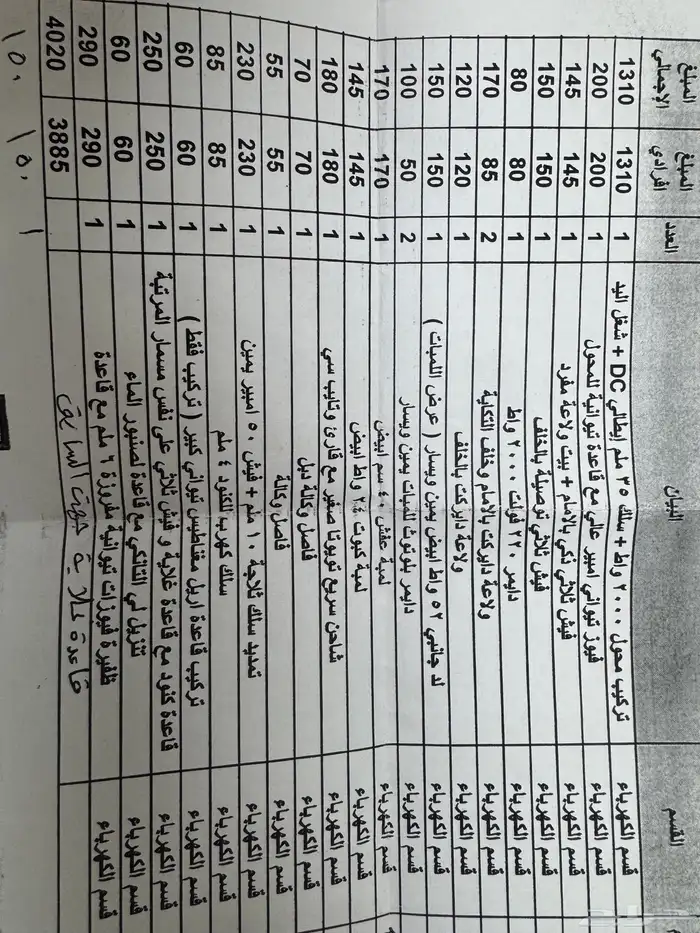 القسم البيان العدد المبلغ افرادي المبلغ الاجمالي
قسم الكهرباء تركيب محول ٢٠٠٠ واط + سلك ٣٥ ملم إيطالي DC + شغل اليد 1 1310 1310
قسم الكهرباء فيوز تيواني امبير عالي مع قاعدة تيوانية للمحول 1 200 200
قسم الكهرباء فيش ثلاثي ذكي بالامام + بيت ولاعة مفرد 1 145 145
قسم الكهرباء فيش ثلاثي توصيلة بالخلف 1 150 150
قسم الكهرباء دايمر ٢٢٠ فولت ٢٠٠٠ واط 1 80 80
قسم الكهرباء ولاعة دايركت بالامام وخلف التكاية 2 85 170
قسم الكهرباء ولاعة دايركت بالخلف 1 120 120
قسم الكهرباء لد جانبي ٥٢ واط ابيض يمين ويسار ( عرض اللمبات ) 1 150 150
قسم الكهرباء دايمر بلوتوث للمبات يمين ويسار 2 50 100
قسم الكهرباء لمبة عفش ٤٠ سم ابيض 1 170 170
قسم الكهرباء لمبة كبوت ٢٤ واط ابيض 1 145 145
قسم الكهرباء شاحن سريع تويوتا صغير مع قارئ وتايب سي 1 180 180
قسم الكهرباء فاصل وكالة دبل 1 70 70
قسم الكهرباء فاصل وكالة 1 55 55
قسم الكهرباء تمديد سلك ثلاجة ١٠ ملم + فيش ٥٠ امبير يمين 1 230 230
قسم الكهرباء سلك كهرب للكنود ٤ ملم 1 85 85
قسم الكهرباء تركيب قاعدة اريل مغناطيس تيواني كبير ( تركيب فقط ) 1 60 60
قسم الكهرباء قاعدة كنود مع قاعدة غلاية و فيش ثلاثي على نفس مسمار المرتبة 1 250 250
قسم الكهرباء تنزيل لي التانكي مع قاعدة لصنبور الماء 1 60 60
قسم الكهرباء ظفيرة فيوزات تيوانية مفروزة ٦ ملم مع قاعدة 1 290 290
قاعدة غلاية جهة السايق 3885 4020
١ ١٥٠ ١٥٠